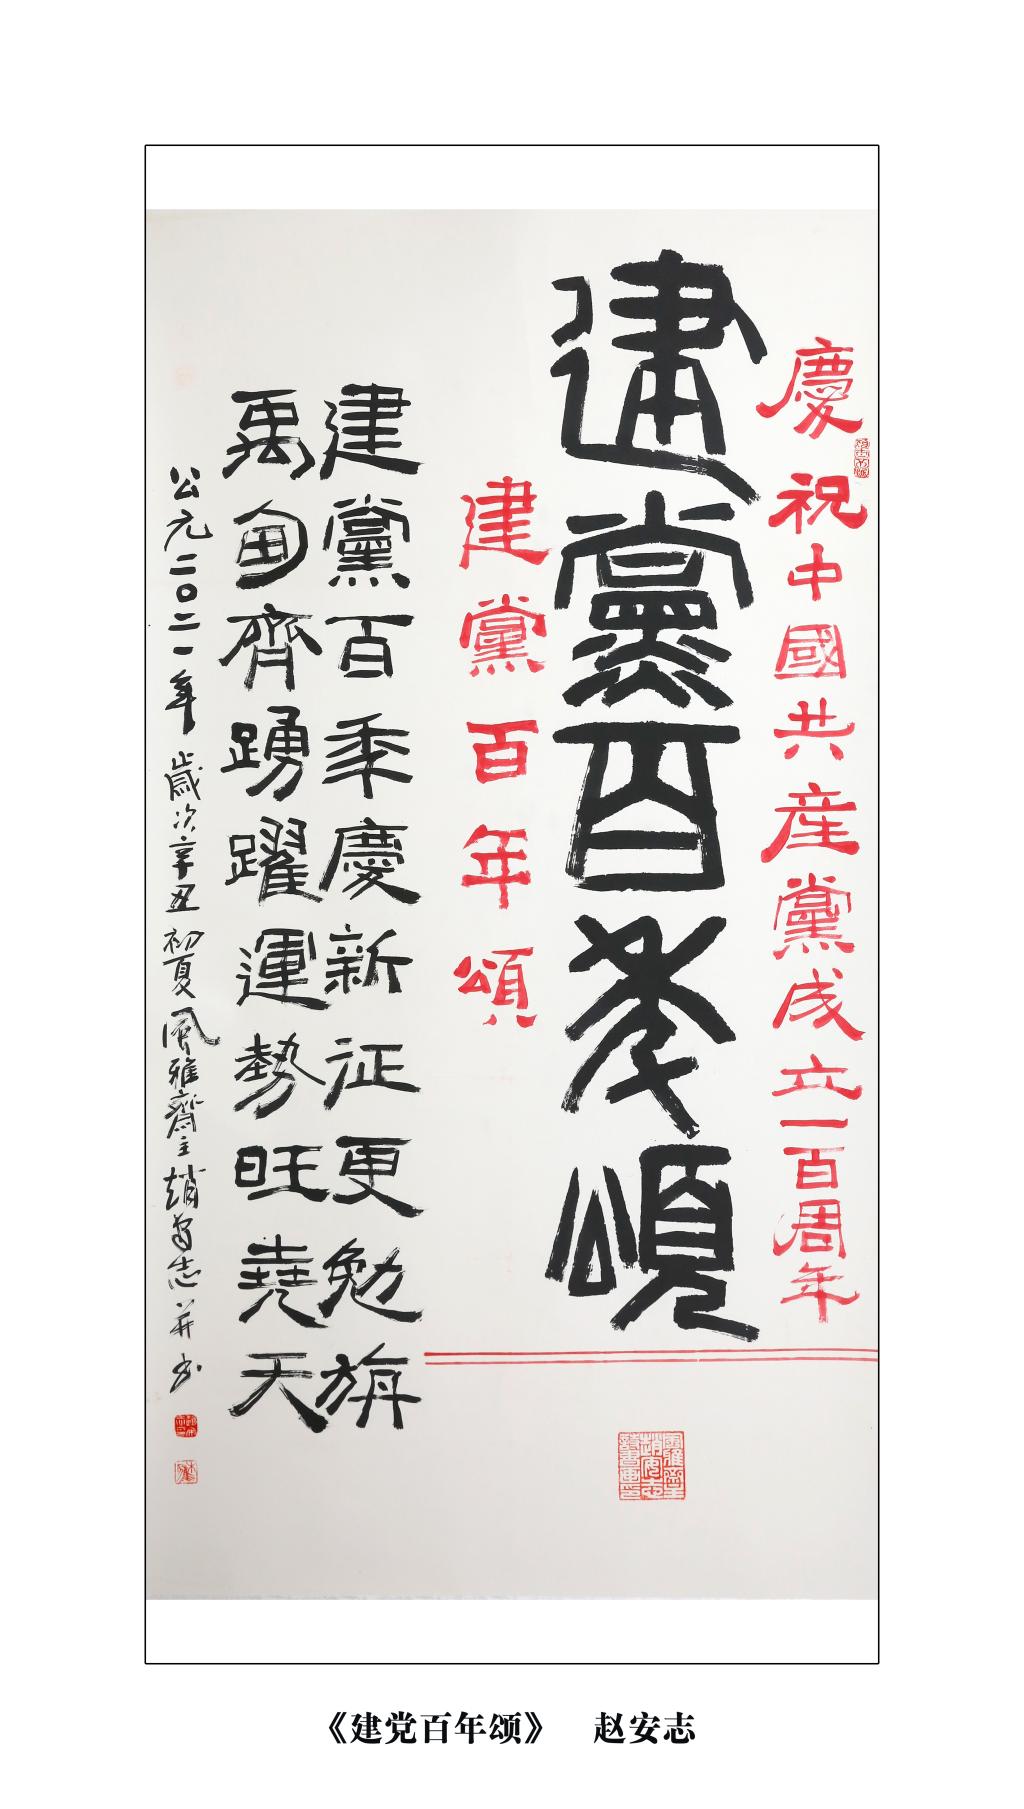 慶祝中國共産黨成立一百周年
建黨百年頌
建黨百年頌
建黨百年慶新征更勉旃
禹甸齊踴躍運勢旺堯天
公元二〇二一年歲次辛丑初夏風雅齋主趙安志并書
風雅齋主趙安志
《建党百年颂》 赵安志